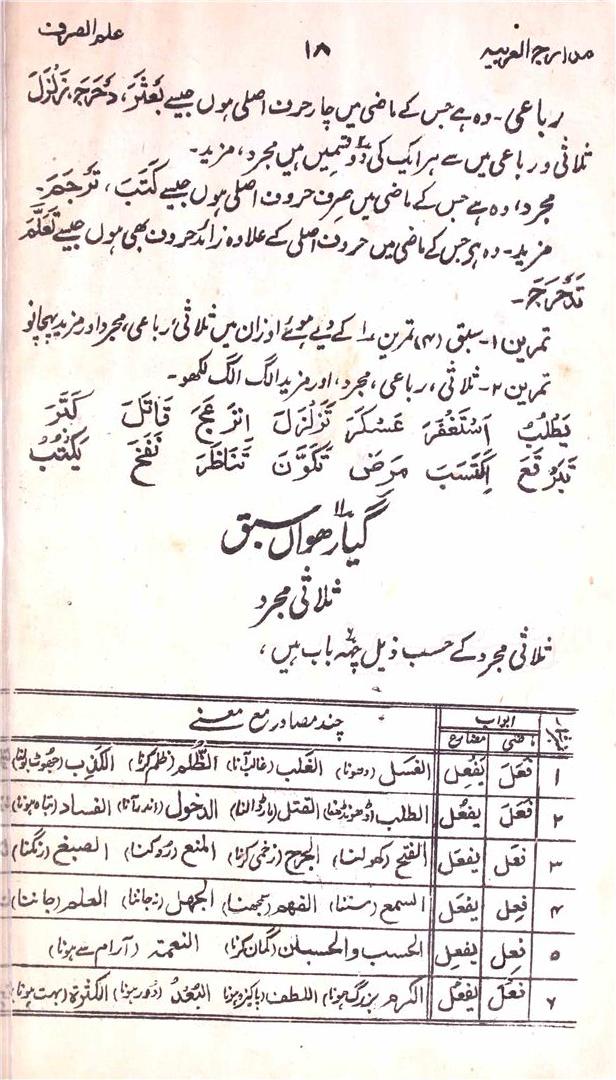 مدارج العربیہ ۱۸ علم الصرف
رباعی۔ وہ ہے جس کے ماضی میں چار حرف اصلی ہوں جیسے بَعْثَرَ، دَحْرَجَ، زَلْزَلَ
ثلاثی و رباعی میں سے ہر ایک کی دو قسمیں ہیں مجرد، مزید۔
مجرد: وہ ہے جس کے ماضی میں صرف حروف اصلی ہوں جیسے کَتَبَ، تَرْجَمَ۔
مزید۔ وہ ہے جس کے ماضی میں حروف اصلی کے علاوہ زائد حروف بھی ہوں جیسے تَعَلَّمَ
تَدَحْرَجَ۔
تمرین ۱۔ سبق (۴) تمرین ۱ کے دیے ہوئے اوزان میں ثلاثی، رباعی، مجرد اور مزید پہچانو
تمرین ۲۔ ثلاثی، رباعی، مجرد، اور مزید الگ الگ لکھو۔
یَطْلُبُ اِسْتَغْفَرَ عَسْکَرَ تَزَلْزَلَ انْزَعَجَ قَاتَلَ کَسَّرَ
تَبَرْقَعَ اِکْتَسَبَ مَرِضَ تَکَوَّنَ تَنَاظَرَ نَفَخَ یَکْتُبُ
گیارھواں سبق ۱۱
ثلاثی مجرد
ثلاثی مجرد کے حسب ذیل چھ ۶ باب ہیں،
ابواب چند مصادر مع معنے
نمبر شمار ماضی مضارع
۱ فَعَلَ یَفْعِل الغسل (دھونا) الغلب (غالب آنا) الظُّلم (ظلم کرنا) الکذب (جھوٹ بولنا)
۲ فَعَلَ یفعُل الطلب (ڈھونڈھنا) القتل (مار ڈالنا) الدخول (اندر آنا) الفساد (تباہ ہونا)
۳ فعَل یفعَل الفتح (کھولنا) الجرح (زخمی کرنا) المنع (روکنا) الصبغ (رنگنا)
۴ فعِل یفعَل السمع (سننا) الفهم (سمجھنا) الجهل (نہ جاننا) العلم (جاننا)
۵ فعِل یفعِل الحسب والحسبان (گمان کرنا) النعمة (آرام سے ہونا)
۶ فعُل یفعُل الکرم (بزرگ ہونا) اللطف (پاکیزہ ہونا) البُعدُ (دور ہونا) الکثرة (بہت ہونا)